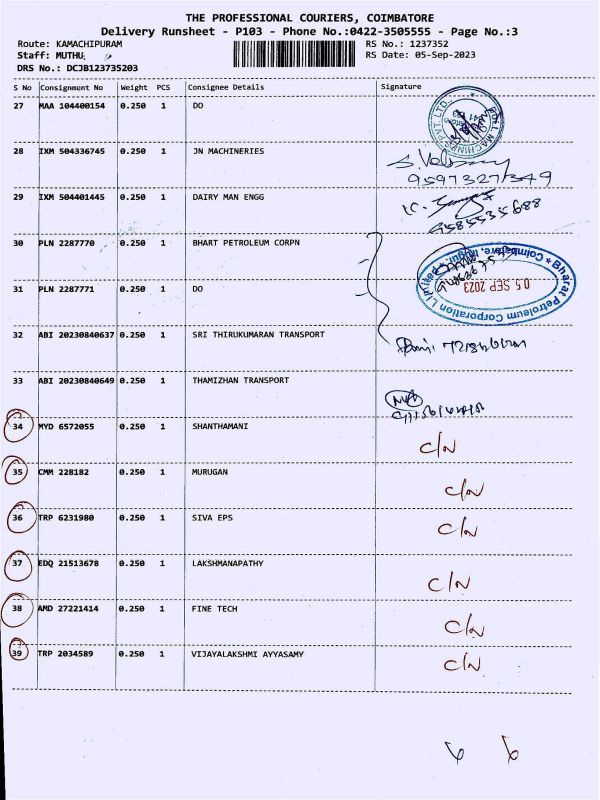 THE PROFESSIONAL COURIERS, COIMBATORE
Delivery Runsheet - P103 - Phone No.:0422-3505555 - Page No.:3
Route: KAMACHIPURAM RS No.: 1237352
Staff: MUTHU, RS Date: 05-Sep-2023
DRS No.: DCJB123735203
S No Consignment No Weight PCS Consignee Details Signature
27 MAA 104400154 0.250 1 DO
28 IXM 504336745 0.250 1 JN MACHINERIES
9597327349
29 IXM 504401445 0.250 1 DAIRY MAN ENGG
9585535688
30 PLN 2287770 0.250 1 BHART PETROLEUM CORPN
Bharat Petroleum Corporation Limited
Coimbatore, Irugur.
05 SEP 2023
31 PLN 2287771 0.250 1 DO
32 ABI 20230840637 0.250 1 SRI THIRUKUMARAN TRANSPORT
33 ABI 20230840649 0.250 1 THAMIZHAN TRANSPORT
34 MYD 6572055 0.250 1 SHANTHAMANI C/N
35 CMM 228182 0.250 1 MURUGAN C/N
36 TRP 6231980 0.250 1 SIVA EPS C/N
37 EDQ 21513678 0.250 1 LAKSHMANAPATHY C/N
38 AMD 27221414 0.250 1 FINE TECH C/N
39 TRP 2034589 0.250 1 VIJAYALAKSHMI AYYASAMY C/N